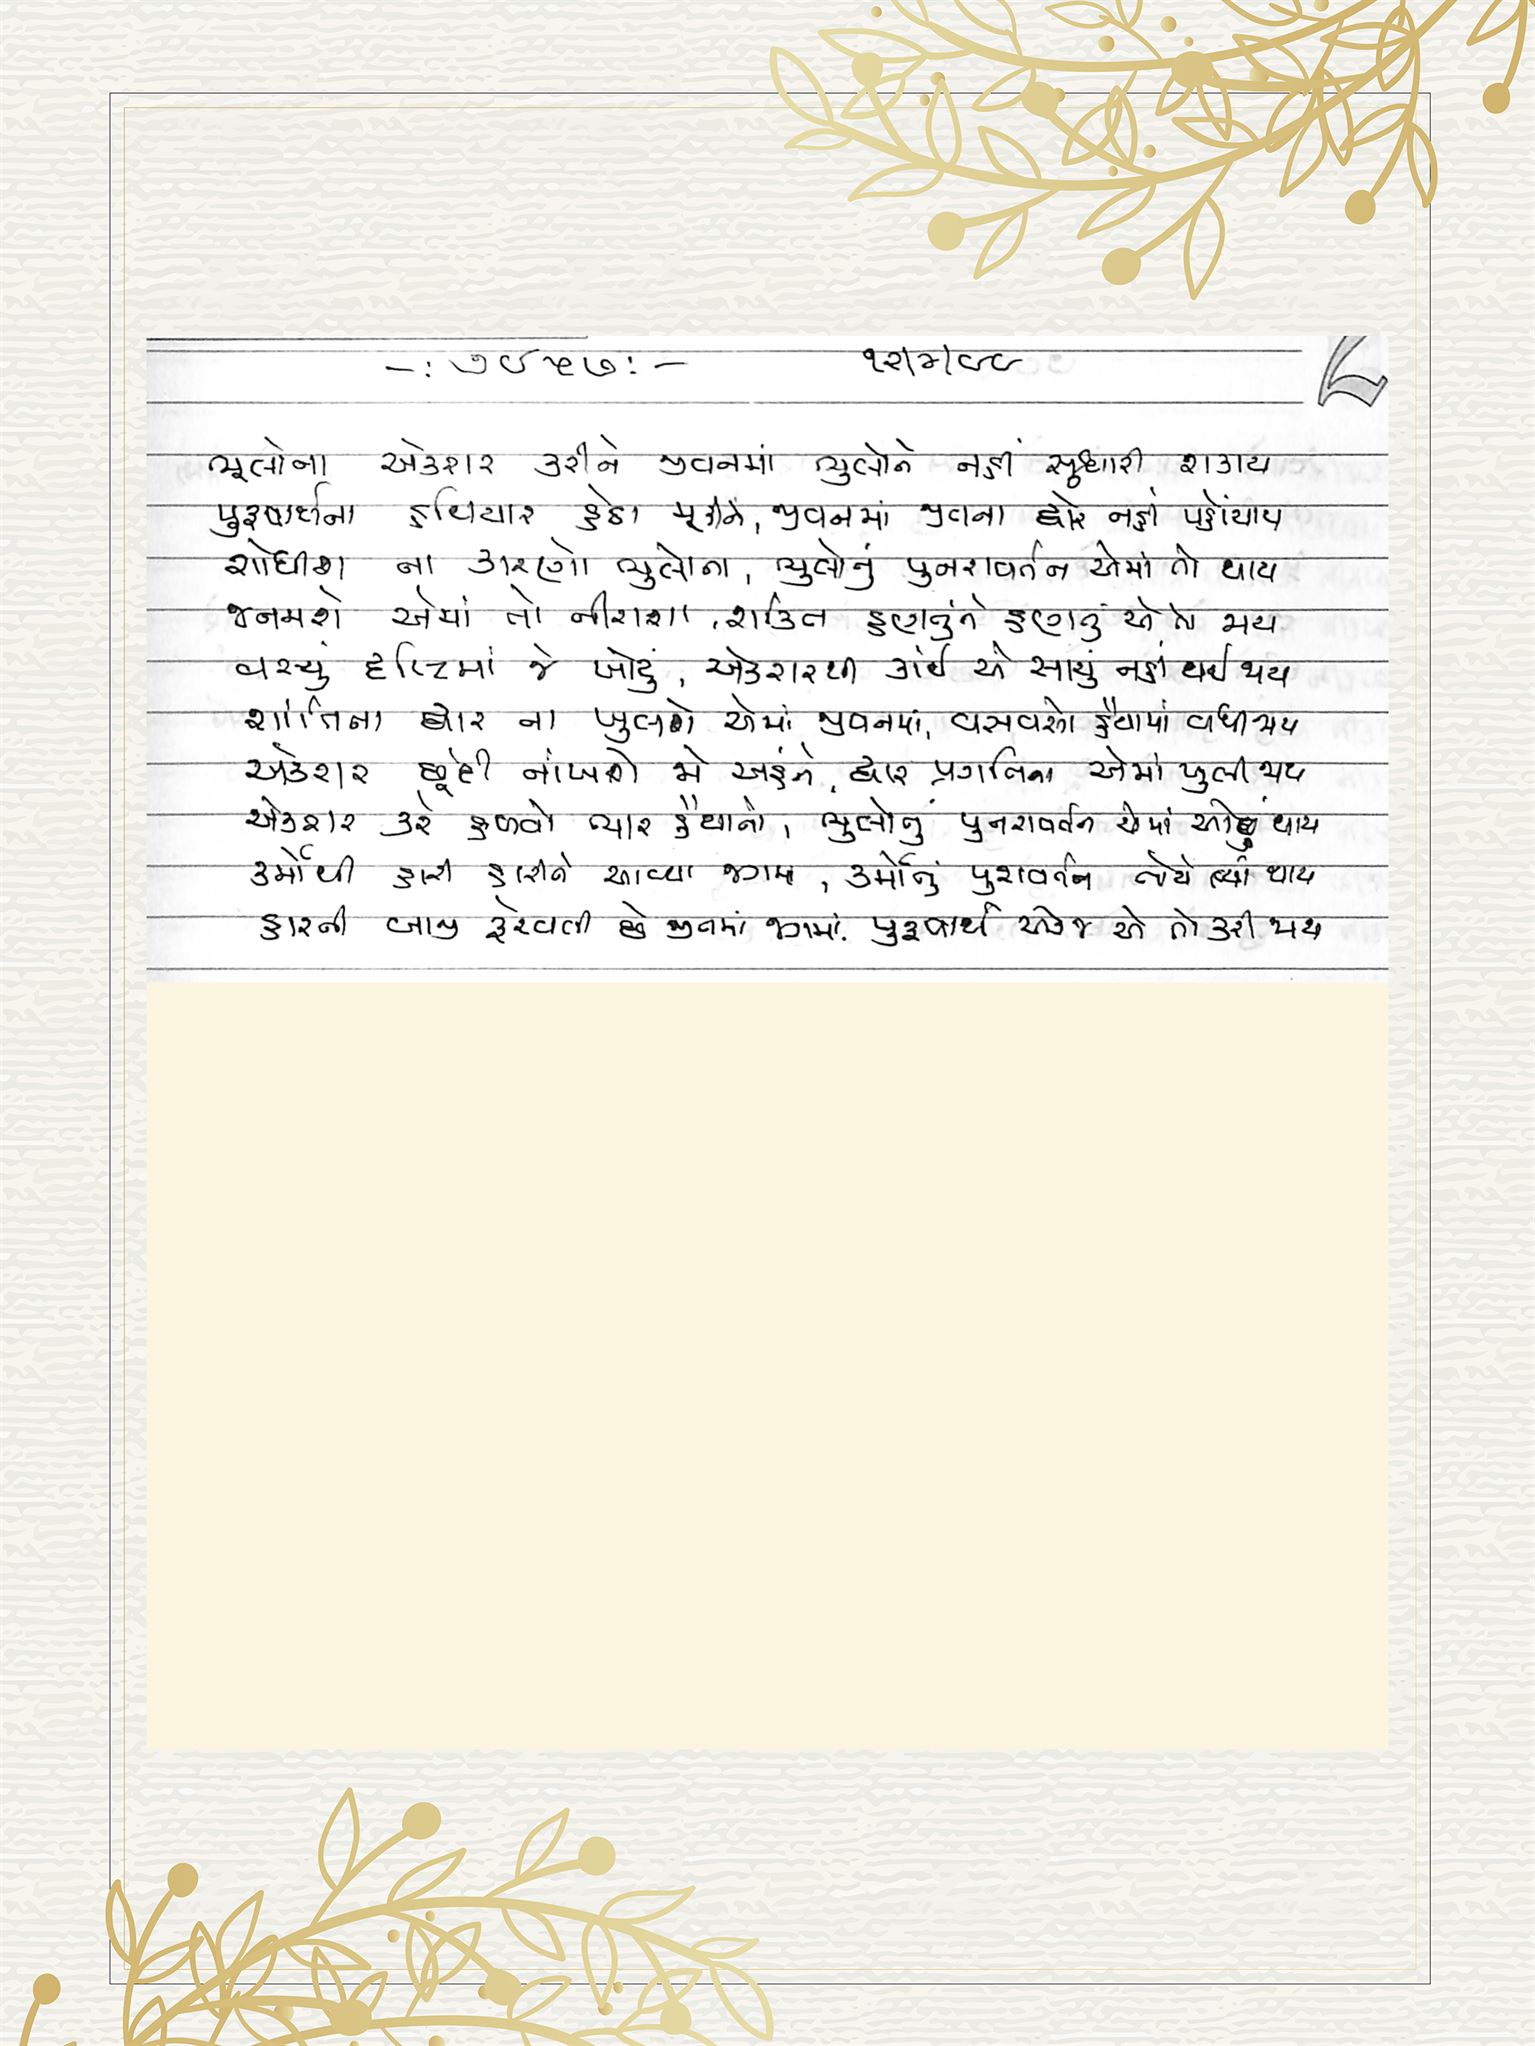 -: ૭૯૫૭ :- ૧૨/૪/૯૯
ભૂલોના એકરાર કરીને જીવનમાં ભુલોને નહીં સુધારી શકાય
પુરૂષાર્થના હથિયાર હેઠા મૂકીને, જીવનમાં જીતના દ્વારે નહીં પહોંચાય
શોધીશ ના કારણો ભુલોના, ભુલોનું પુનરાવર્તન એમાં તો થાય
જનમશે એમાં તો નીરાશા, શક્તિ હણાતુંને હણાતું એ તો જાય
વસ્યું દૃષ્ટિમાં જે ખોટું, એકરારથી કાંઈ એ સાચું નહીં થઈ જાય
શાંતિના દ્વાર ના ખુલશે એમાં જીવનમાં, વસવસો હૈયામાં વધી જાય
એકરાર છૂંદી નાંખશે જો અહંને, દ્વાર પ્રગતિના એમાં ખુલી જાય
એકરાર કરે હળવો ભાર હૈયાનો, ભુલોનું પુનરાવર્તન એમાં ઓછું થાય
કર્મોથી હારી હારીને આવ્યા જગમાં, કર્મોનું પુરાવર્તન ત્યાં થાય
હારની બાજી ફેરવવી છે જીવનમાં જગમાં, પુરૂષાર્થ એકજ એ તો કરી જાય